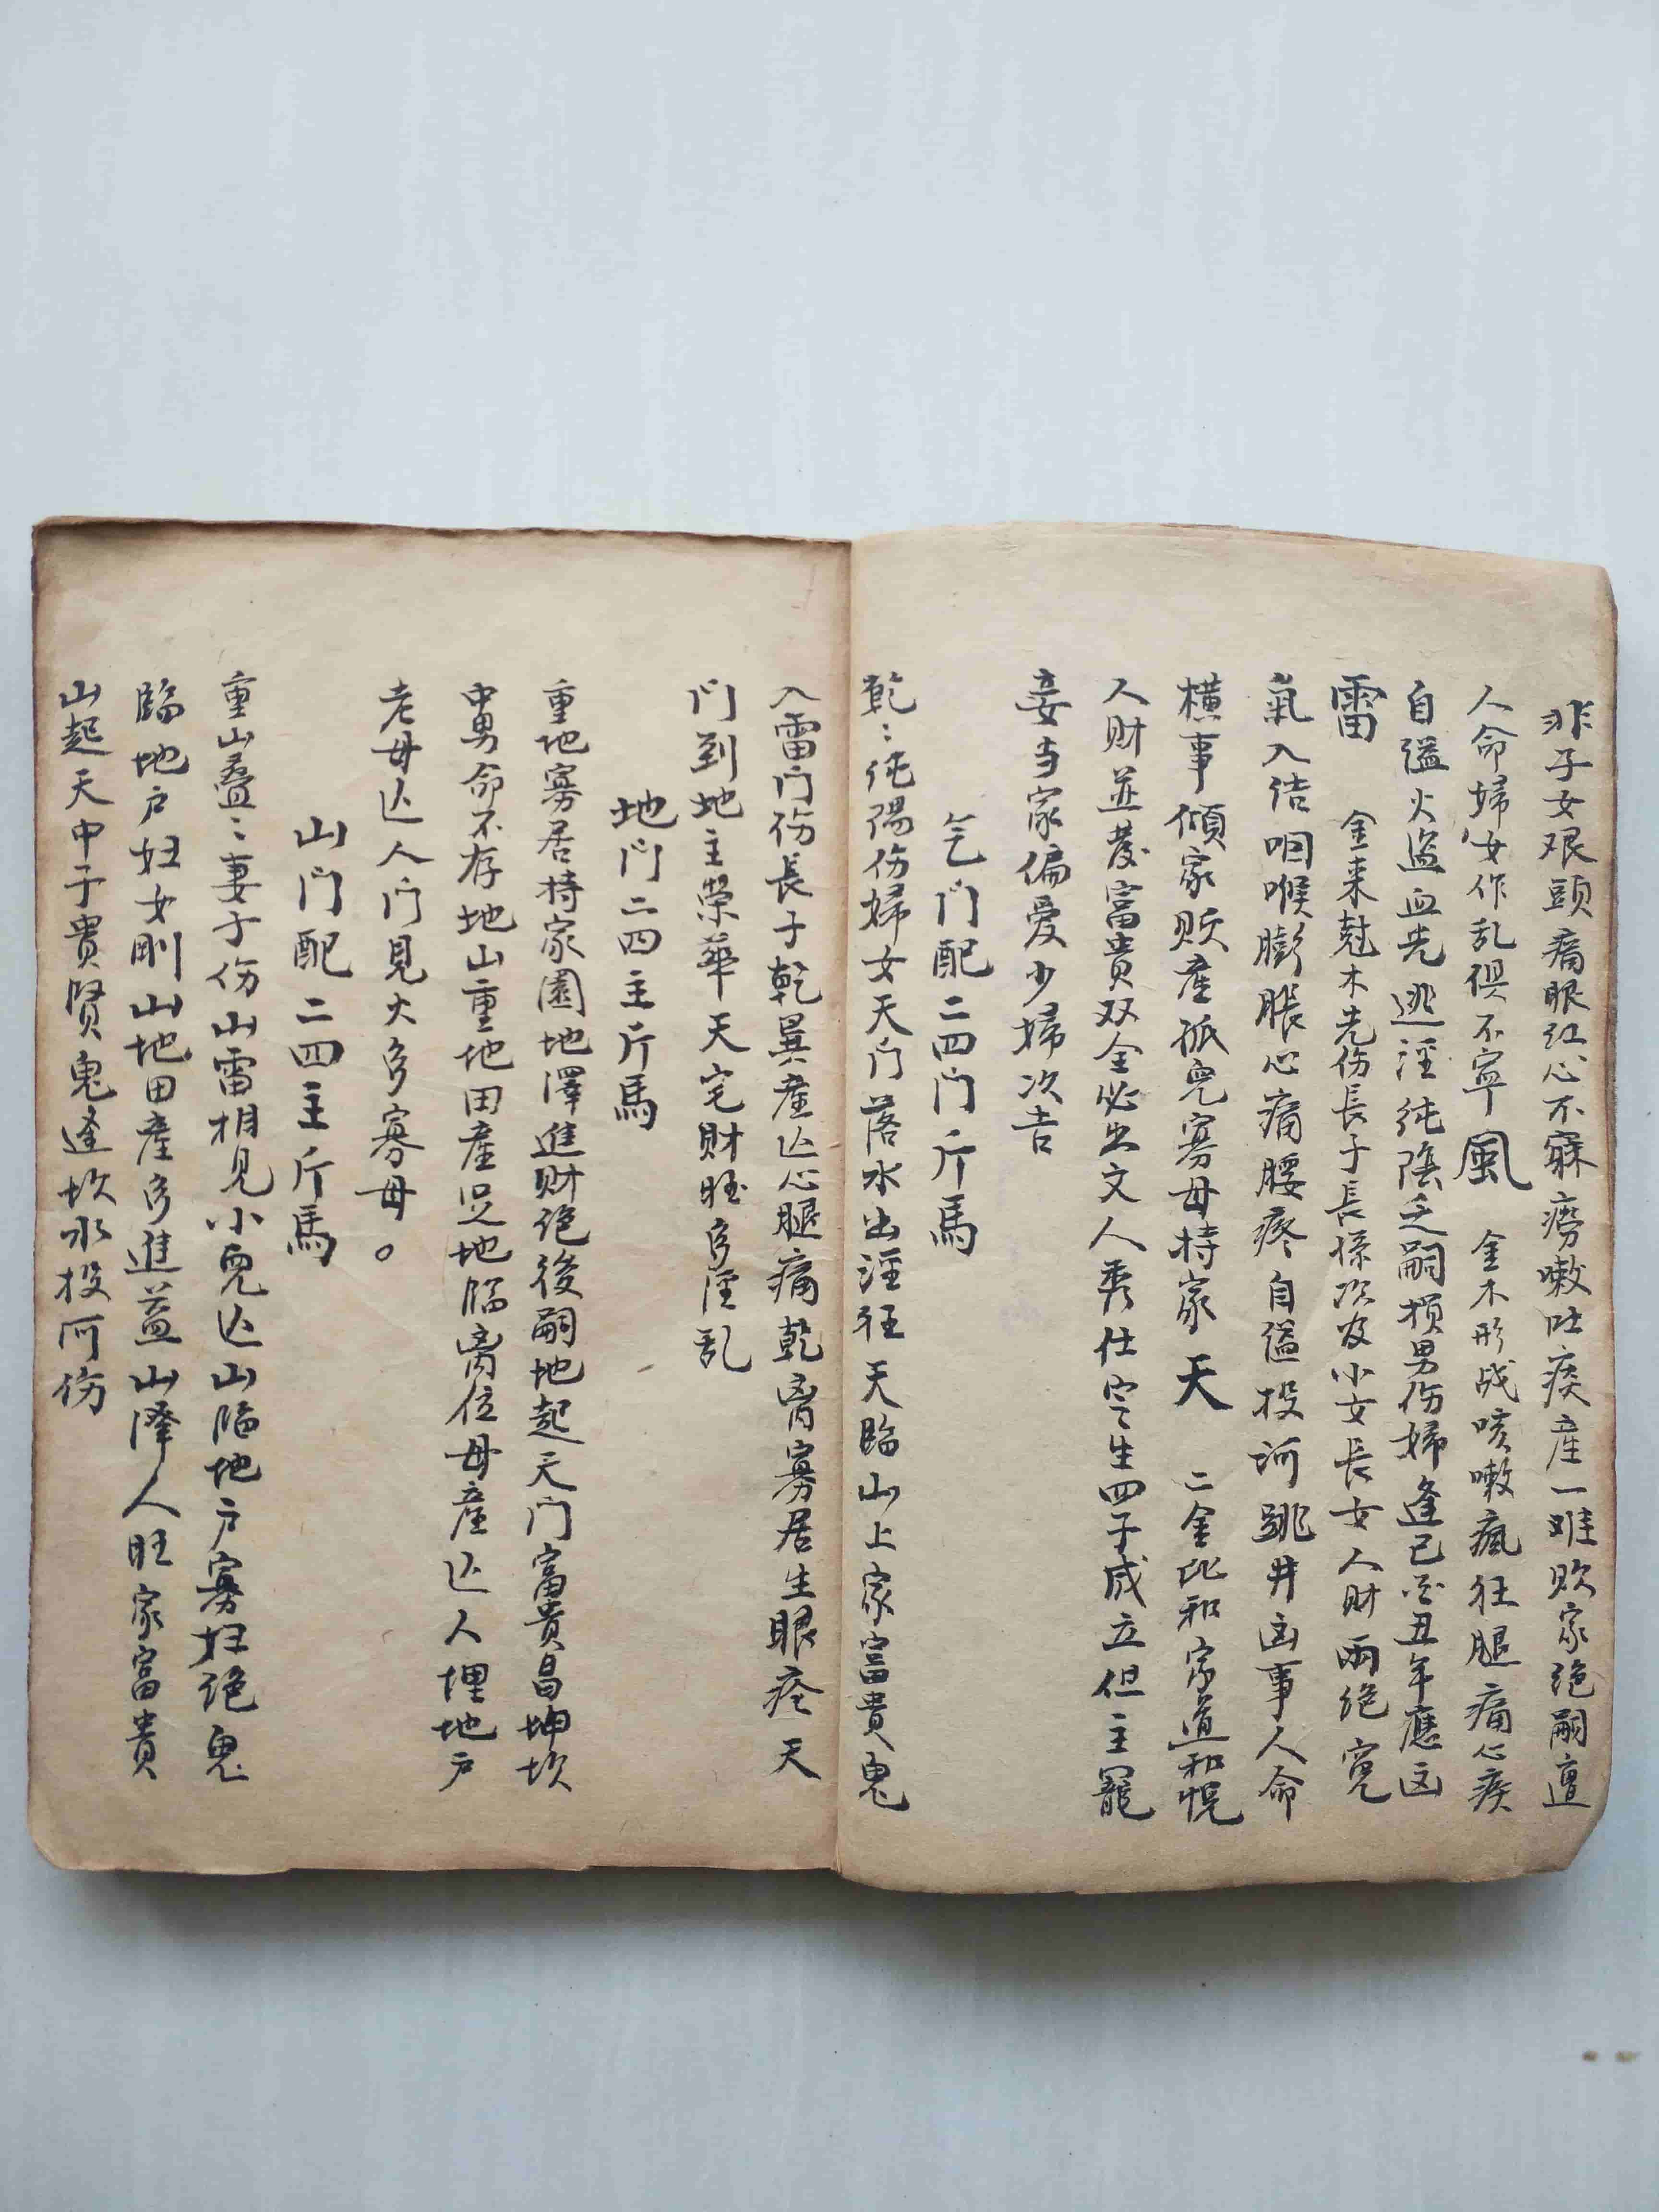 非子女艰頭痛眼红心不寐癆嗽吐痰產一难败家绝嗣遭
人命婦女作乱俱不寧風 金木形战咳嗽瘋狂腿痛心疾
自缢火盗血光逃淫純陰乏嗣损男伤婦逢已酉丑年應凶
雷 金来尅木先伤長子長孫次及小女長女人財兩绝寃
氣入结咽喉膨脹心痛腰疼自缢投河跳井凶事人命
横事傾家败產孤兒寡母持家天 二金比和家道和悦
人财並發富貴双全必出文人秀仕定生四子成立但主寵
妾当家偏爱少婦次吉
乞门配二四门斤馬
乾:纯陽伤婦女天门落水出淫狂天臨山上家富貴鬼
入雷门伤長子乾巽產亡心腿痛乾离寡居生眼疼天
门到地主榮華天宅财旺多淫乱
地门二四主斤馬
重地寡居持家園地澤進财绝後嗣地起天门富貴昌坤坎
中男命不存地山重地田產足地临离位母產亡人埋地户
老母亡人门見火多寡母。
山门配二四主斤馬
重山叠:妻子伤山雷相見小兒亡山临地户寡妇绝鬼
臨地户妇女剛山地田產多進益山澤人旺家富貴
山起天中子貴贤鬼逢坎水投河伤